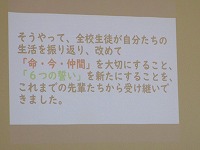 そうやって、全校生徒が自分たちの
生活を振り返り、改めて
「命・今・仲間」を大切にすること、
「６つの誓い」を新たにすることを、
これまでの先輩たちから受け継いで
きました。